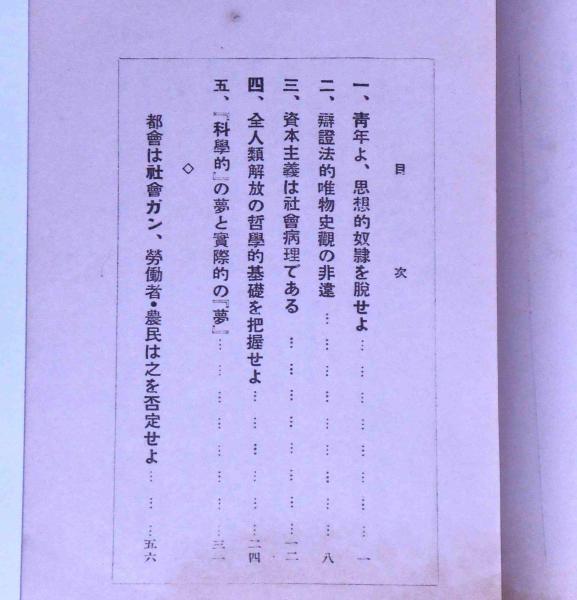 目次
一、青年よ、思想的奴隷を脱せよ………………………一
二、辯證法的唯物史觀の非違………………………八
三、資本主義は社會病理である………………………一二
四、全人類解放の哲學的基礎を把握せよ………………二四
五、『科學的』の夢と實際的の『夢』………………………三一
◇
都會は社會ガン、勞働者・農民は之を否定せよ………五六